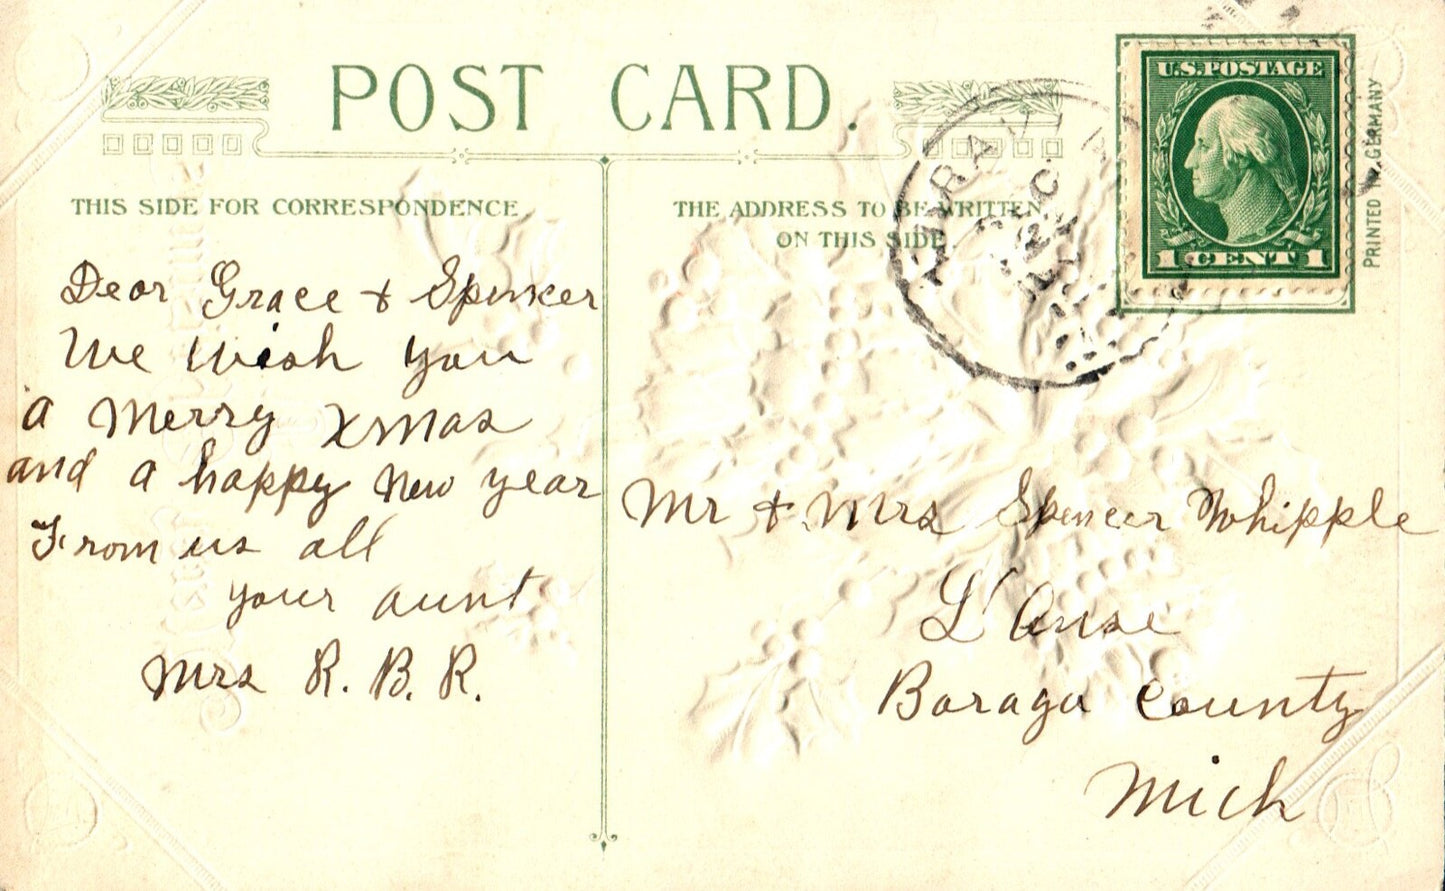 POST CARD.
THIS SIDE FOR CORRESPONDENCE
THE ADDRESS TO BE WRITTEN
ON THIS SIDE.
U.S. POSTAGE
1 CENT 1
PRINTED IN GERMANY
DEC
12
Dear Grace & Spencer
We wish you
a Merry Xmas
and a happy New year
From us all
your aunt
Mrs R. B. R.
Mr & Mrs Spencer Whipple
L'Anse
Baraga County
Mich